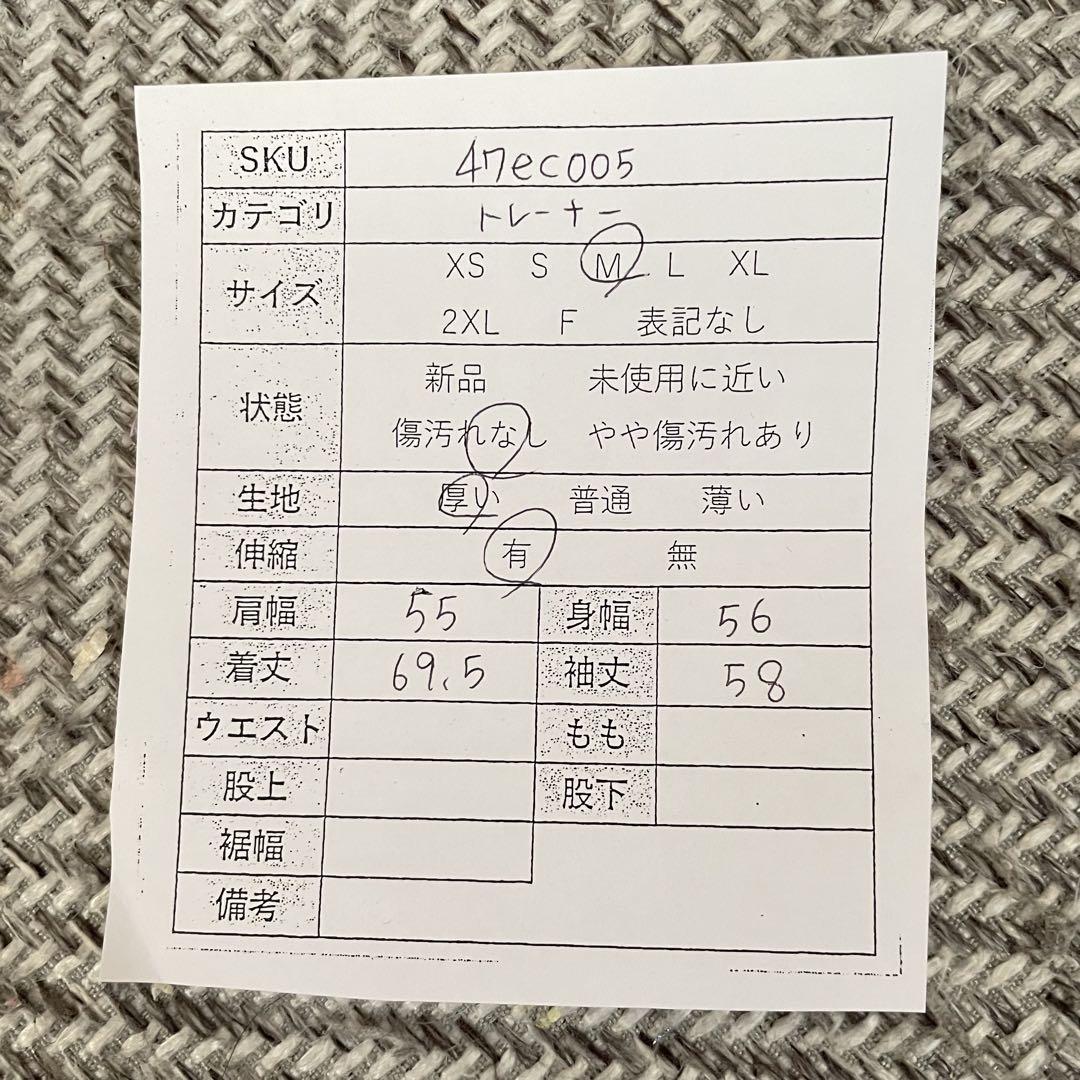 SKU 47ec005
カテゴリ トレーナー
サイズ XS S M L XL
2XL F 表記なし
状態 新品 未使用に近い
傷汚れなし やや傷汚れあり
生地 厚い 普通 薄い
伸縮 有 無
肩幅 55 身幅 56
着丈 69.5 袖丈 58
ウエスト もも
股上 股下
裾幅
備考